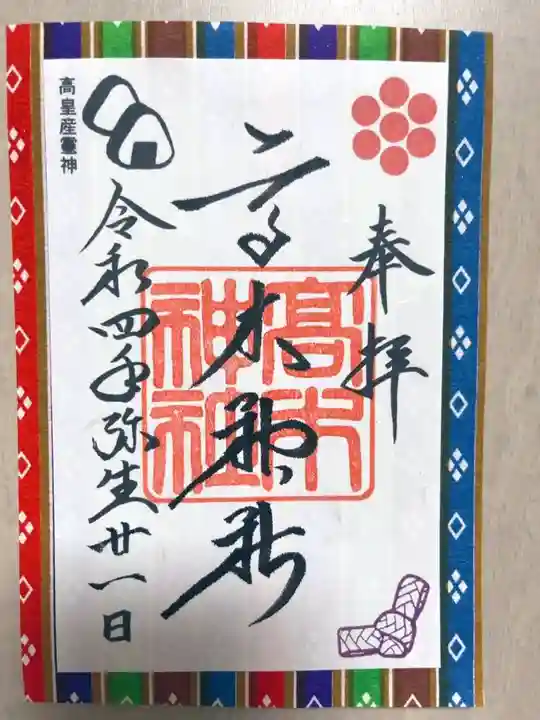 奉拝
髙木神社
髙木神社
令和四年弥生廿一日
高皇産霊神